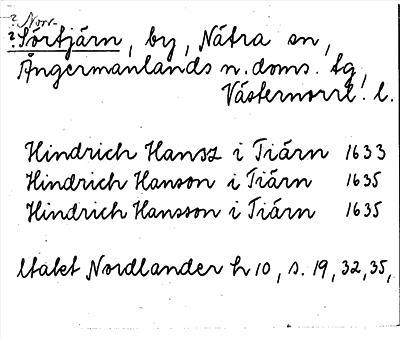 ? Norr-
? Sörtjärn, by, Nätra sn,
Ångermanlands n. doms. tg,
Västernorrl. l.
Hindrich Hansz i Tiärn 1633
Hindrich Hanson i Tiärn 1635
Hindrich Hansson i Tiärn 1635
Utalet Nordlander h 10, s. 19, 32, 35,